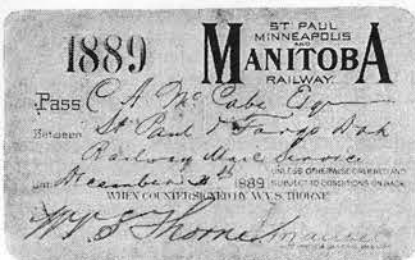 1889
ST PAUL
MINNEAPOLIS
AND
MANITOBA
RAILWAY.
Pass C A McCabe Esqr
Between St Paul & Fargo Dak
Railway Mail Service
Until December 31st 1889 UNLESS OTHERWISE ORDERED AND
SUBJECT TO CONDITIONS ON BACK
WHEN COUNTERSIGNED BY W.V.S. THORNE
W V S Thorne